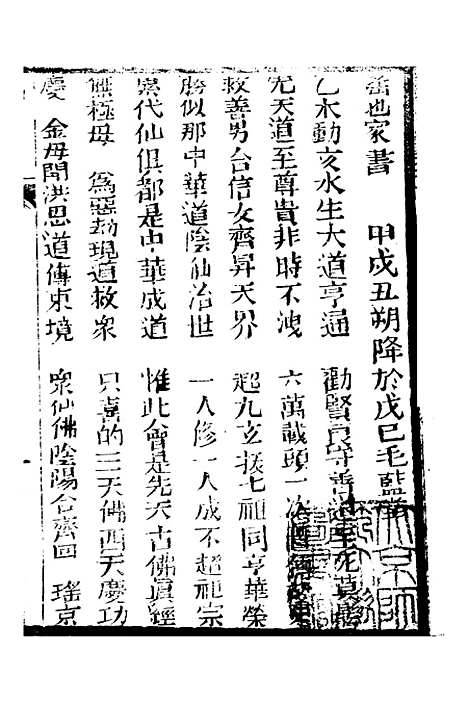 岳也家書　甲戍丑朔降於戊巳毛藍
乙木動亥水生大道亨通　勸賢良守善
先天道至尊貴非時不洩　六萬載頭一次
救善男台信女齊昇天界　超九玄拔七祖同亨華榮
勝似那中華道陰仙治世　一人修一人成不超祖宗
累代仙俱都是中華成道　惟此會是先天古佛眞經
無極母　為惡劫現道救衆　只喜的三天佛西天慶功
慶　金母開洪恩道傳東境　衆仙佛陰陽合齊回　瑤京